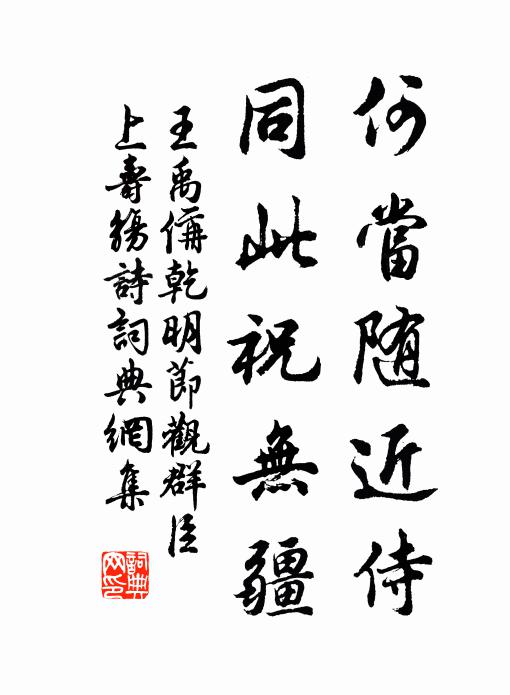 何當隨近侍
同此祝無疆
王禹偁乾明節觀群臣
上壽觴詩詞典網集
詞典網印